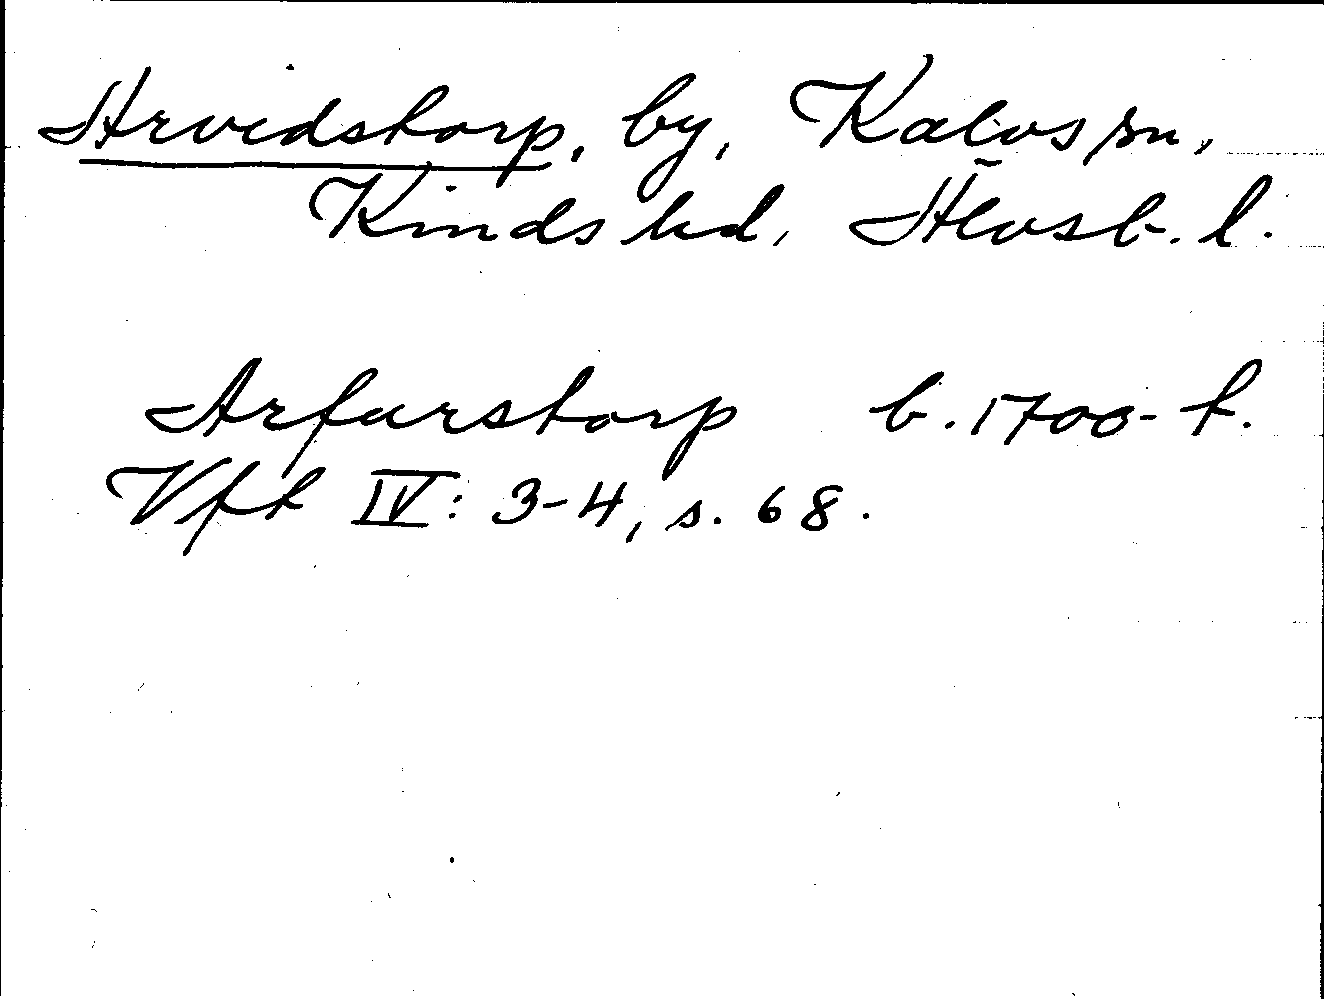 Arvidstorp, by, Kalvs sn,
Kinds hd, Älvsb. l.
Arfurstorp b. 1700-t.
Vft IV: 3-4, s. 68.